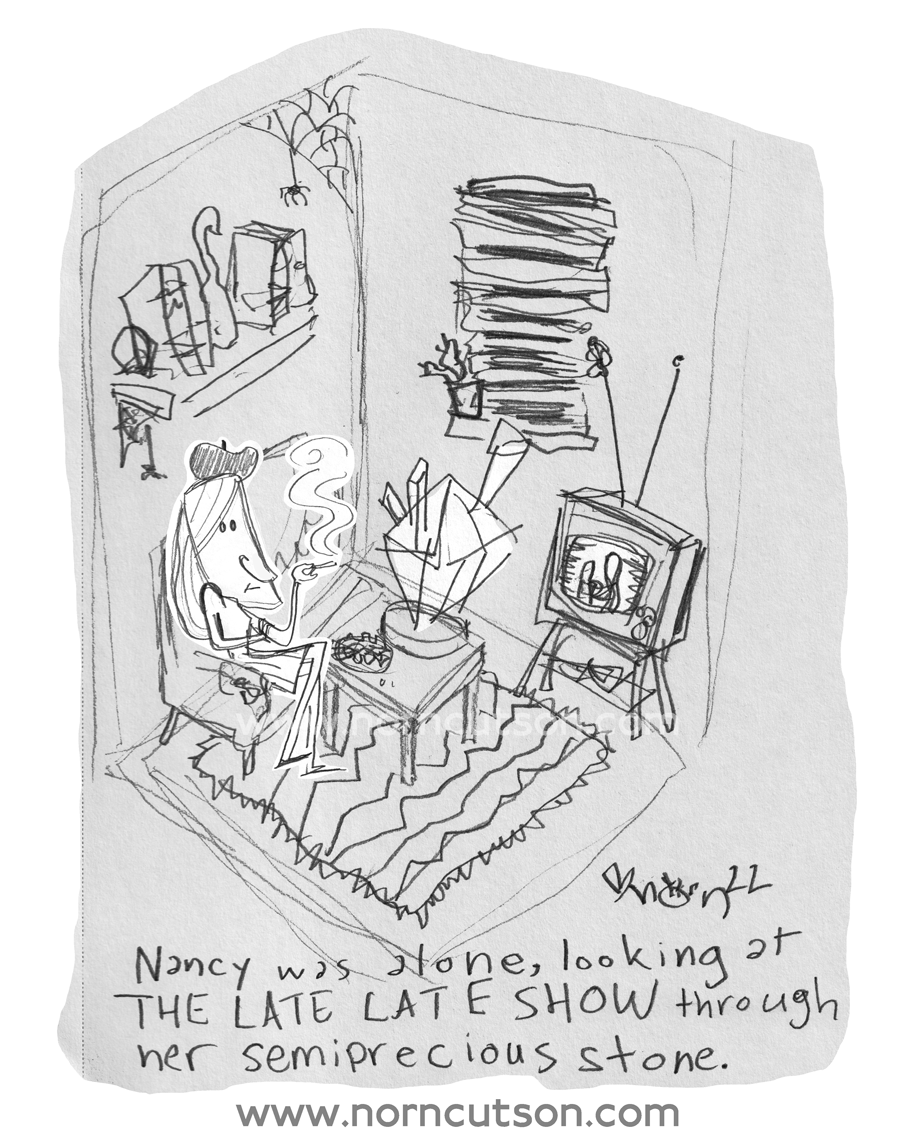 www.norncutson.com
Nancy was alone, looking at
THE LATE LATE SHOW through
her semiprecious stone.
www.norncutson.com